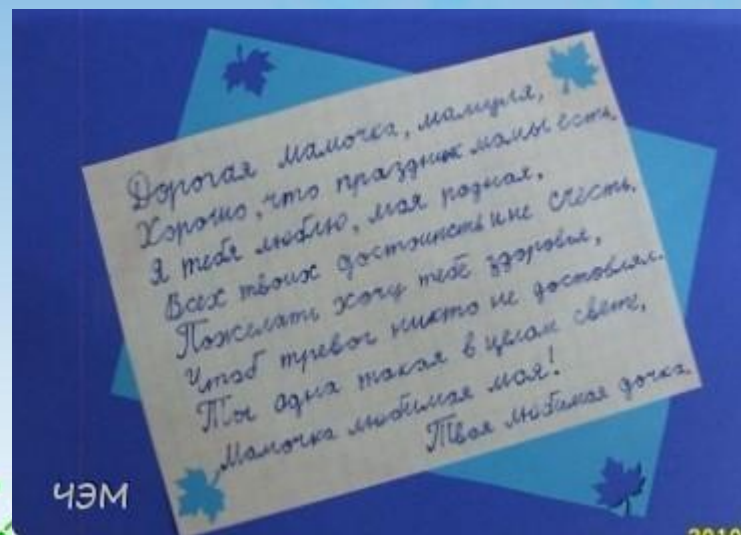 Дорогая мамочка, мамуля,
Хорошо, что праздник мамы есть.
Я тебя люблю, моя родная,
Всех твоих достоинств и не счесть.
Пожелать хочу тебе здоровья,
Чтоб тревог никто не доставлял.
Ты одна такая в целом свете,
Мамочка любимая моя!
Твоя любимая дочка.
ЧЭМ